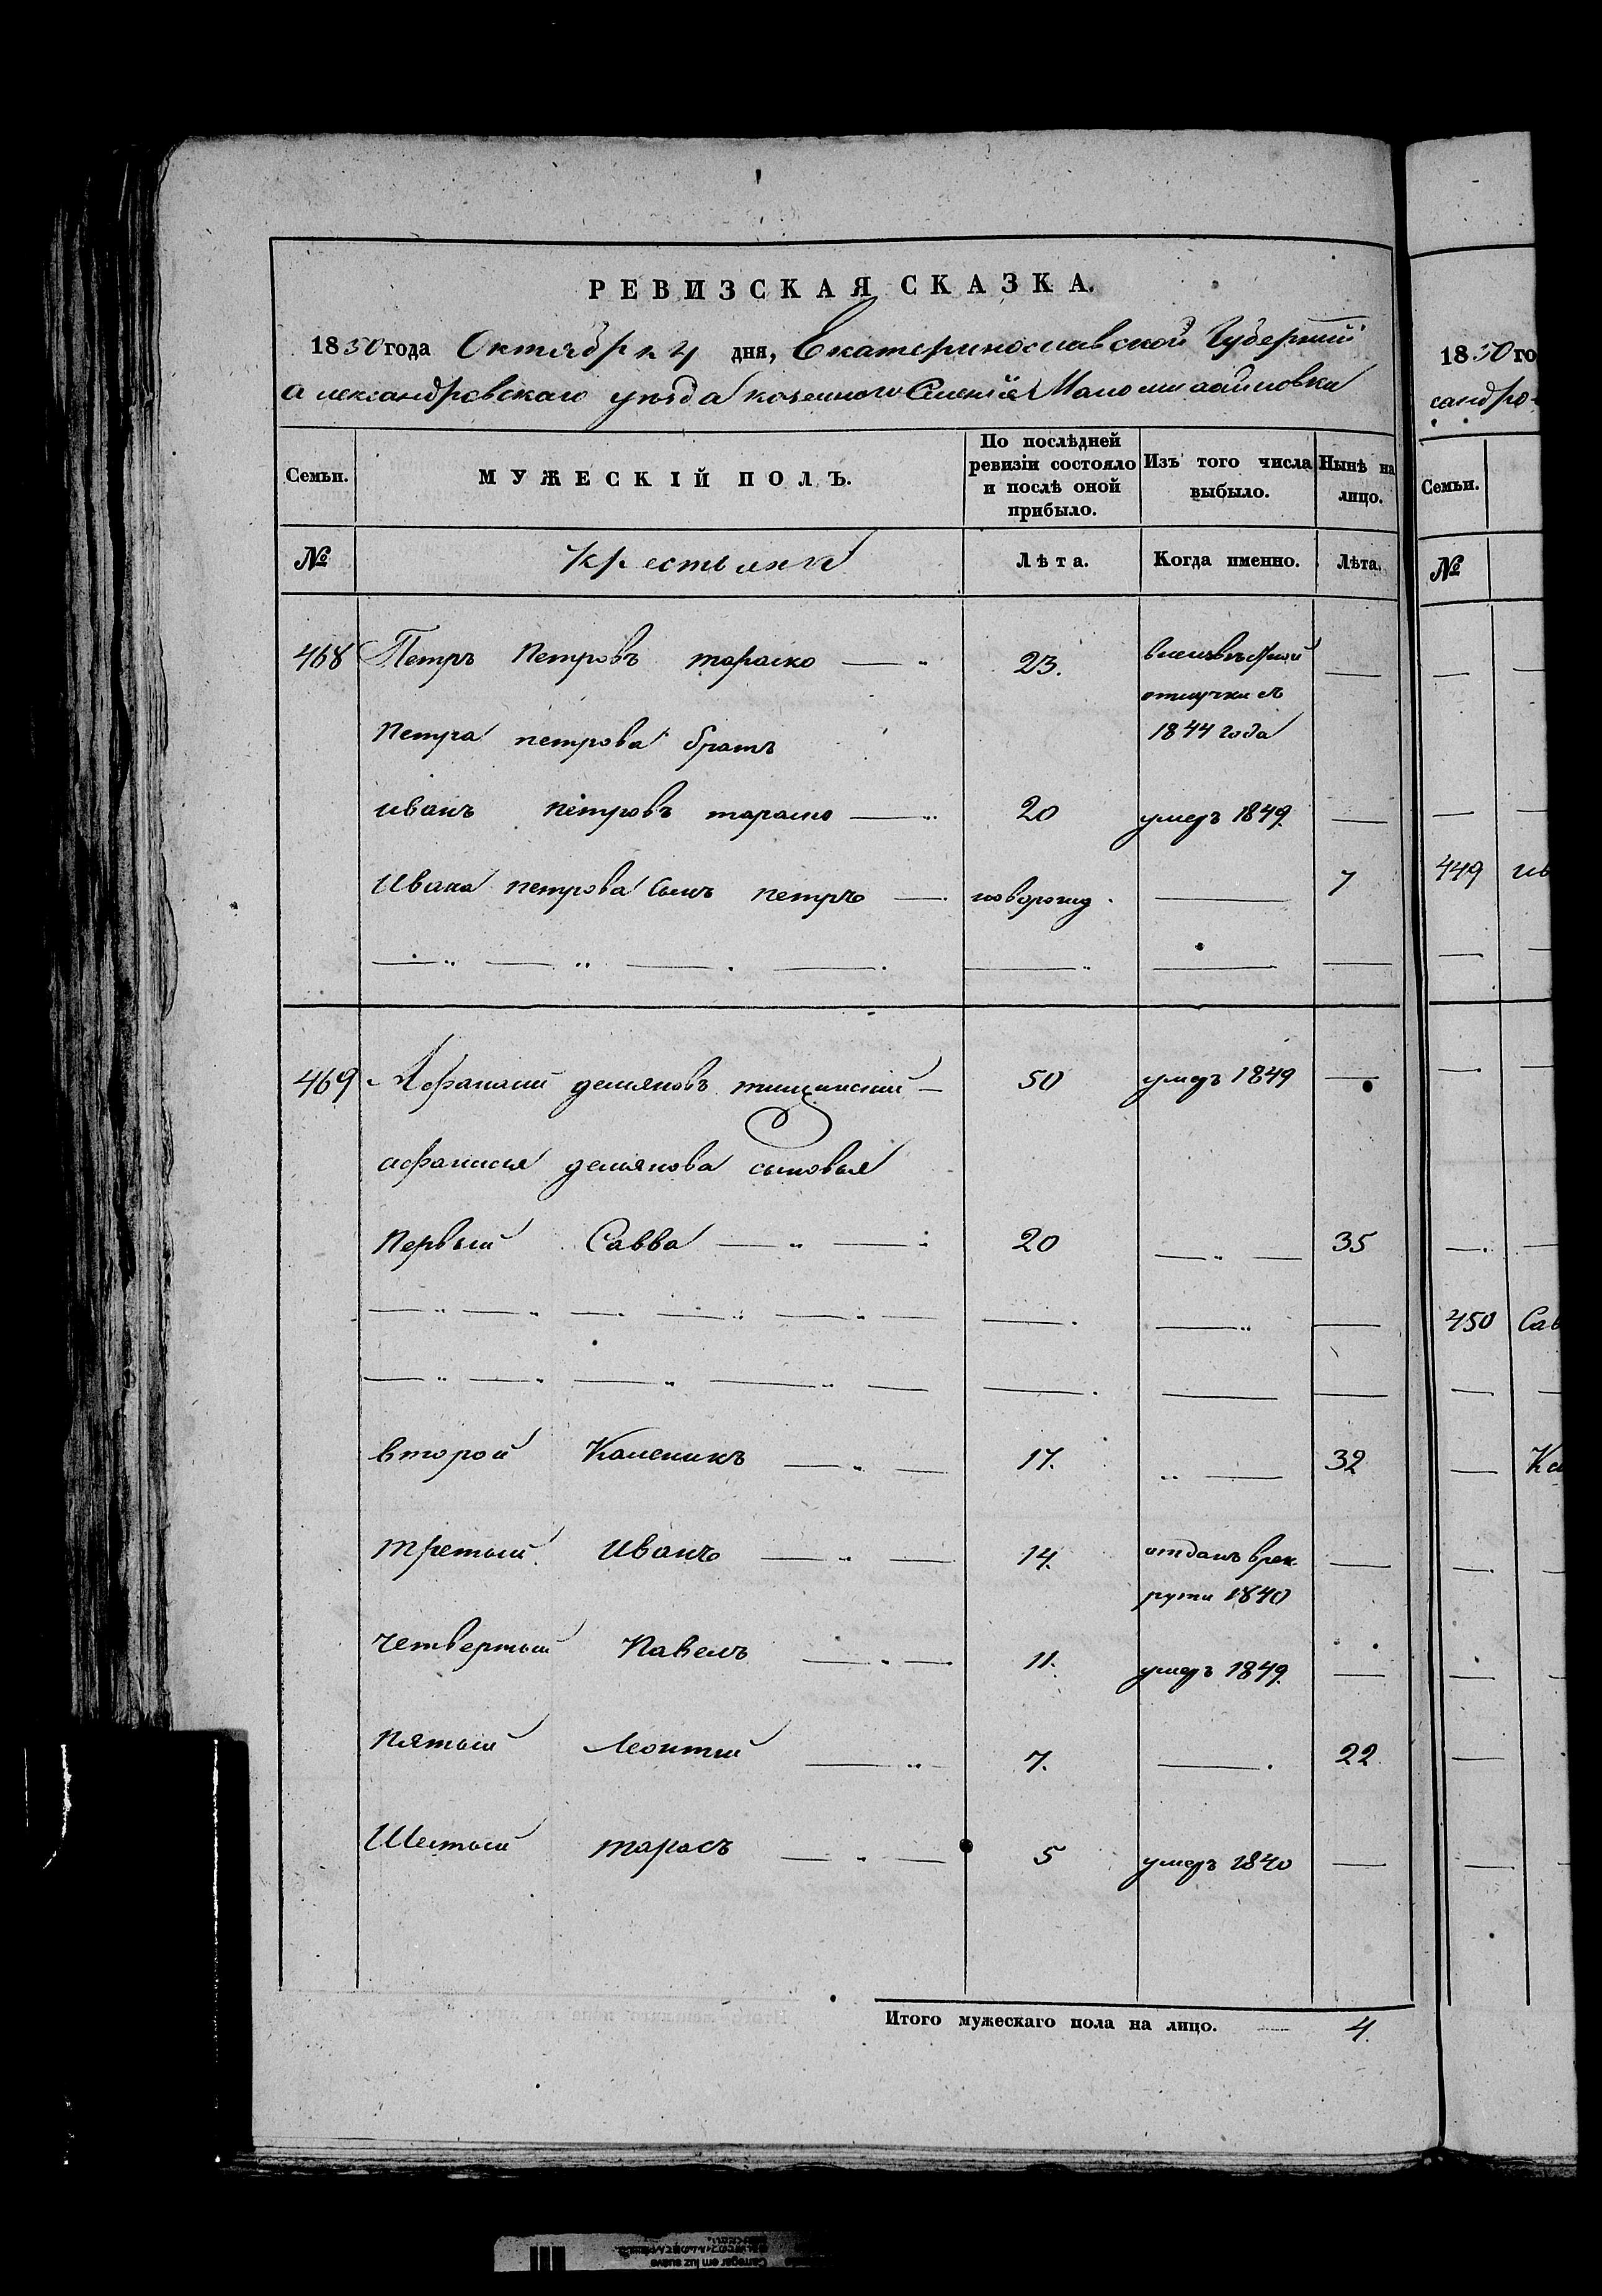 РЕВИЗСКАЯ СКАЗКА.
1850 года Октября 4 дня, Екатеринославской Губернии
Александровского уезда казенного Селения Маломихайловки
Семьи.
МУЖЕСКІЙ ПОЛЪ.
По послѣдней ревизіи состояло и послѣ оной прибыло.
Изъ того числа выбыло.
Нынѣ на лицо.
№ крестьяне Лѣта. Когда именно. Лѣта.
468 Петръ Петровъ тараско 23. в неизвѣстной
отлучки съ
Петра петрова братъ 1844 года
иванъ петровъ тараско 20 умеръ 1849.
Ивана петрова сынъ петръ новорожд. 7
469 Афанасий демяновъ 50 умеръ 1849
афанасия демянова сыновья
Первый Савва 20 35
второй Каленикъ 17. 32
третьий Иванъ 14. отданъ в рек
руты 1840
четвертый Павелъ 11. умеръ 1849.
пятый Леонтий 7. 22
Шестый тарасъ 5 умеръ 1840
Итого мужескаго пола на лицо. 4.
1850 го
сандро-
Семьи.
№
449 ив
450 Сав
Ка